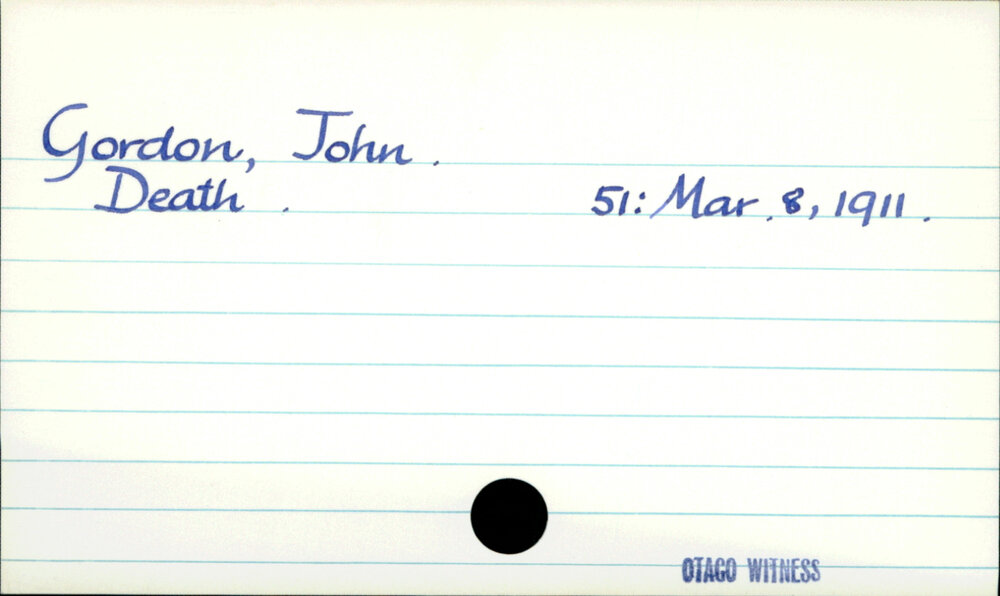 Gordon, John.
Death. 51: Mar. 8, 1911.
OTAGO WITNESS